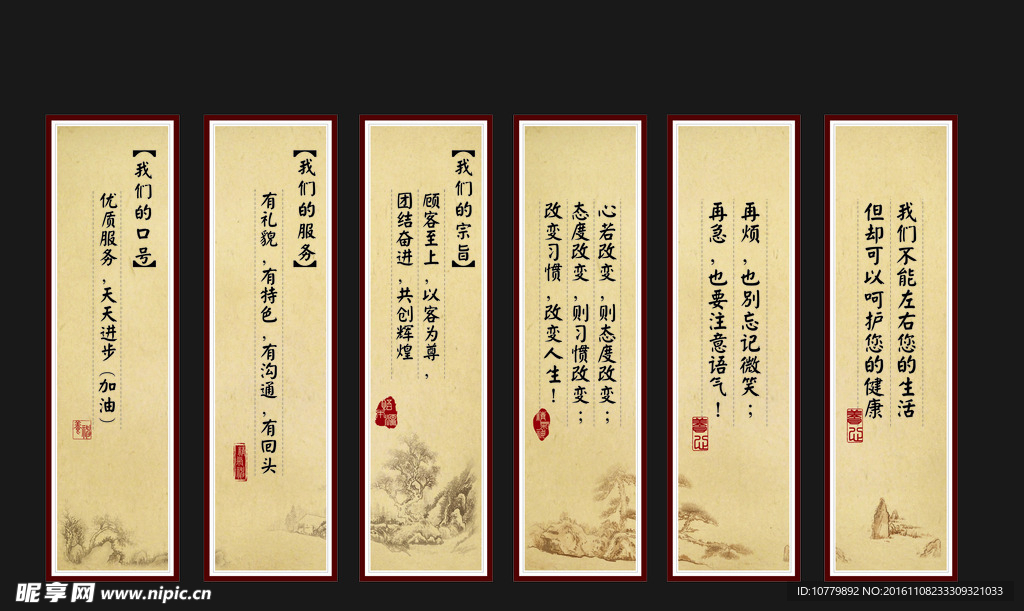 【我们的口号】
优质服务，天天进步（加油）
【我们的服务】
有礼貌，有特色，有沟通，有回头
【我们的宗旨】
顾客至上，以客为尊，
团结奋进，共创辉煌
心若改变，则态度改变；
态度改变，则习惯改变；
改变习惯，改变人生！
再烦，也别忘记微笑；
再急，也要注意语气！
我们不能左右您的生活
但却可以呵护您的健康
昵享网 www.nipic.cn
ID:10779892 NO:20161108233309321033